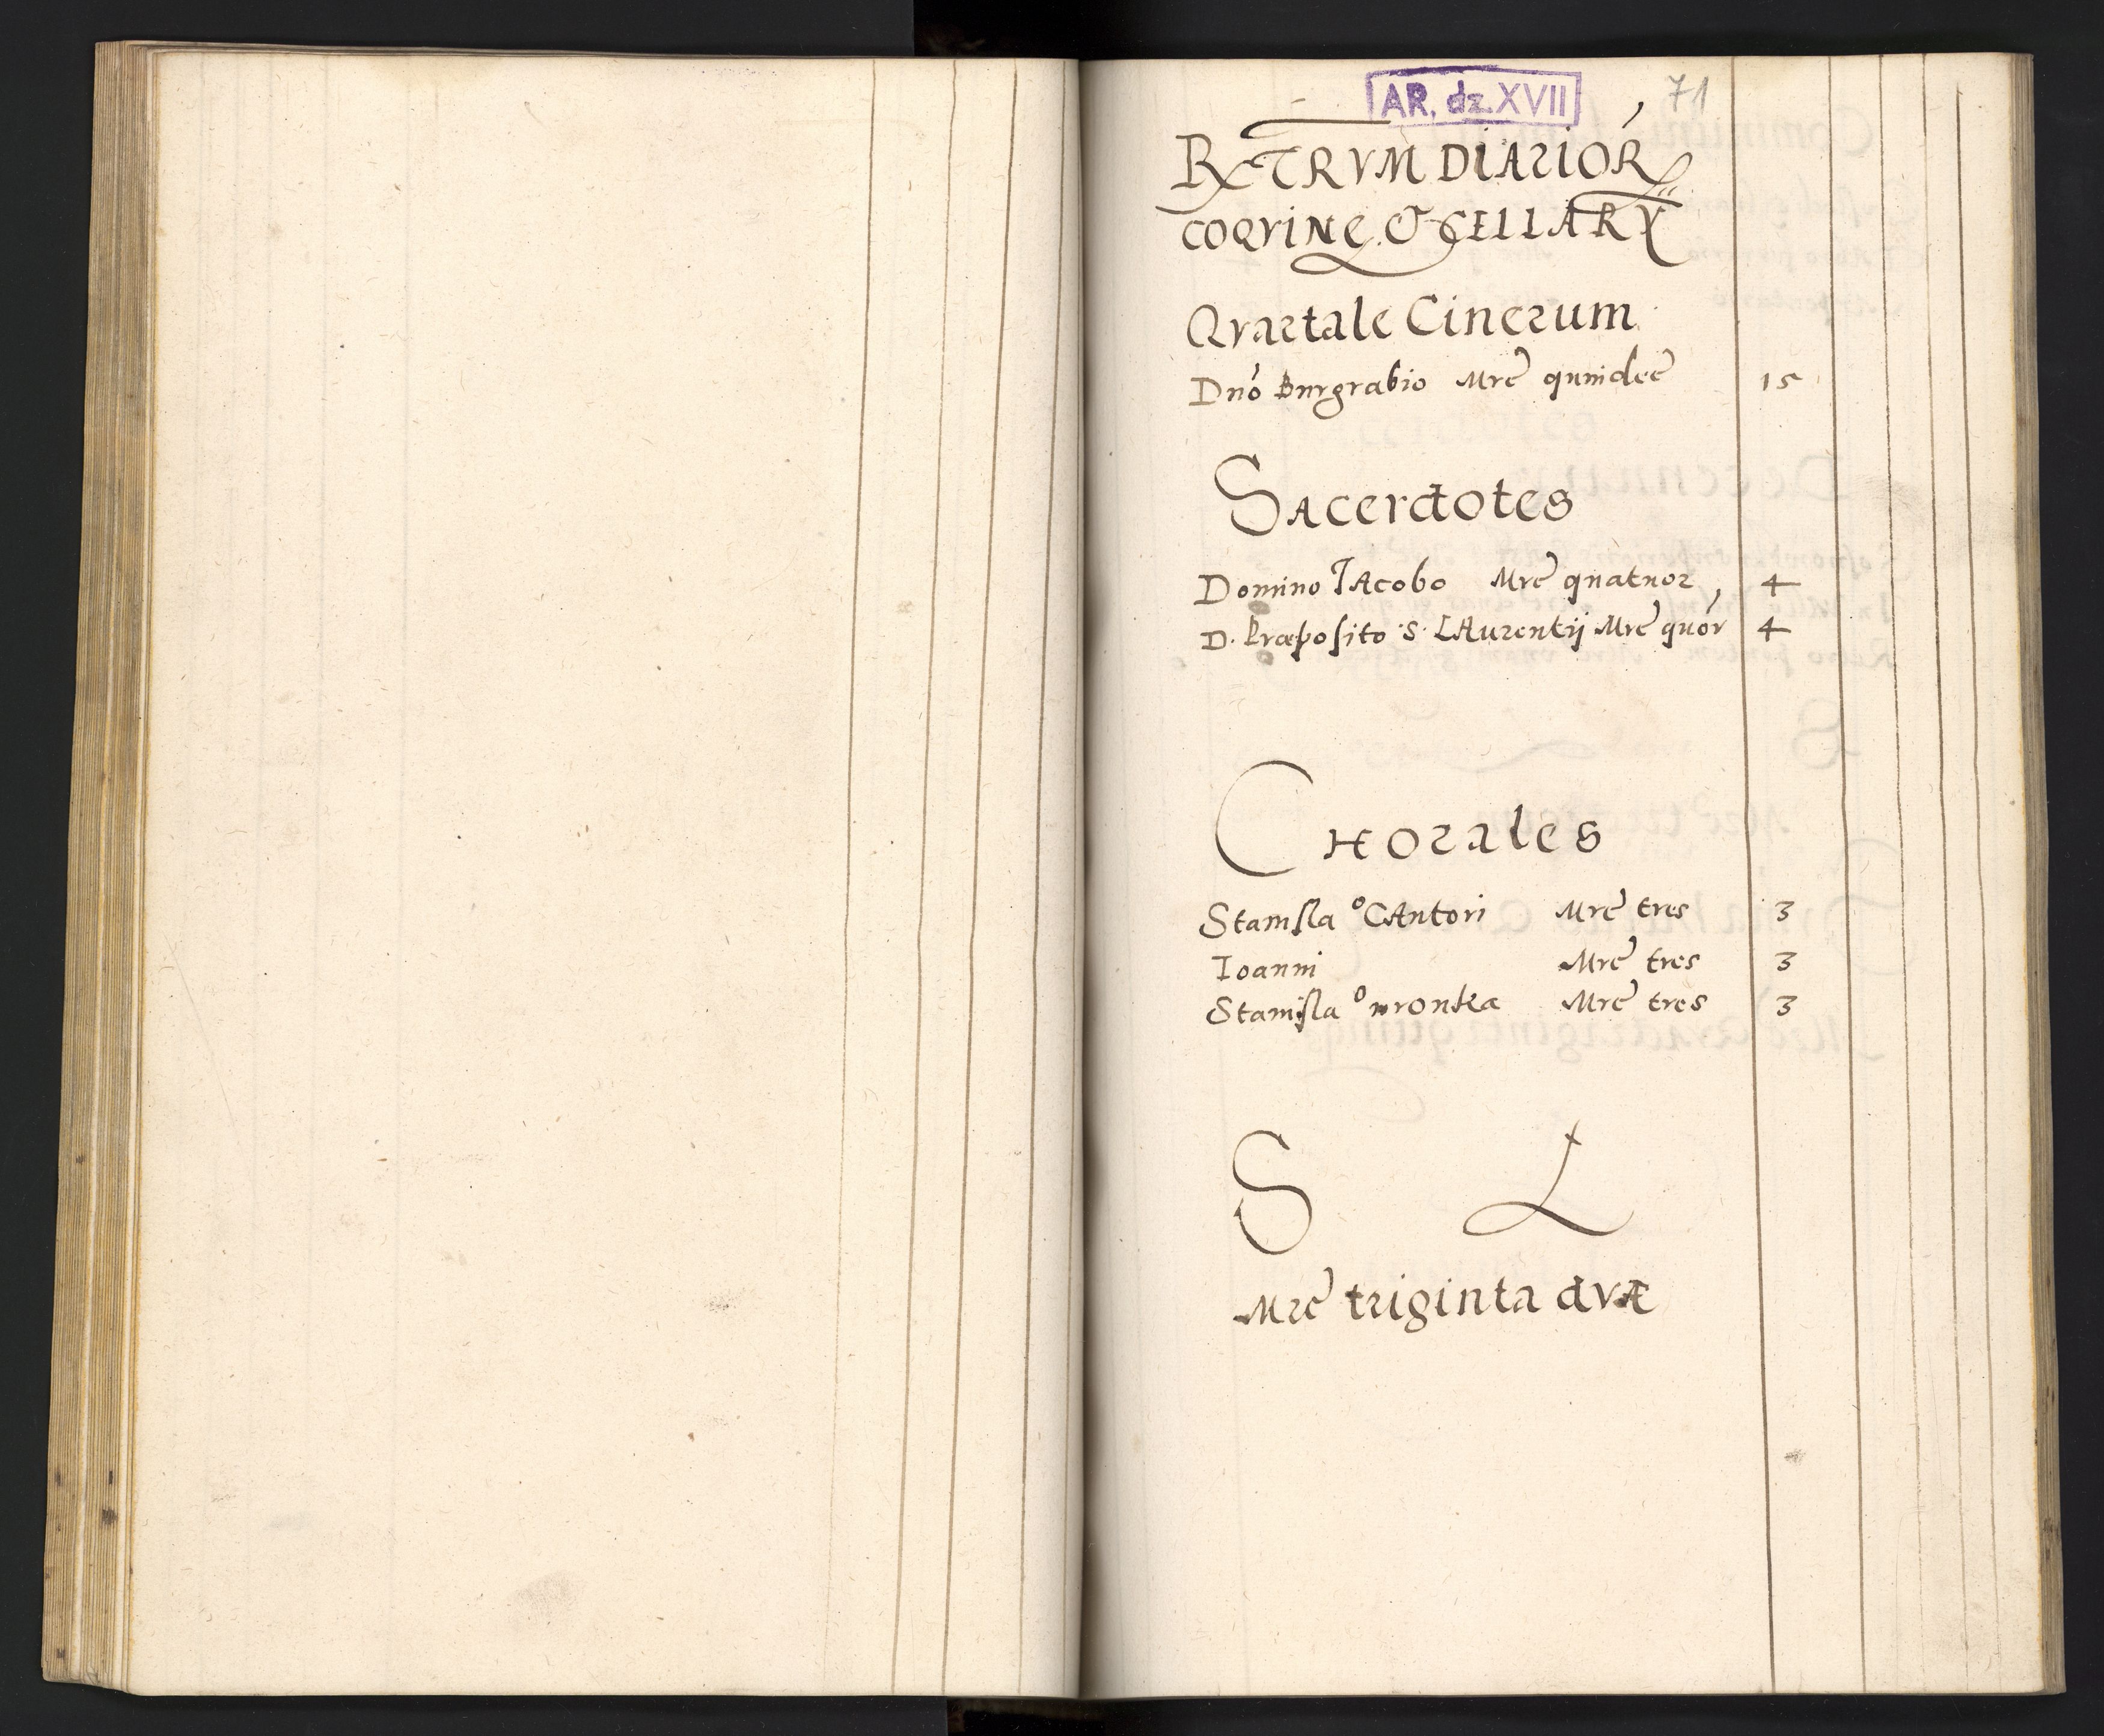 AR, dz. XVII
71
RXTRVM DIARIOR
COQVINE & CELLARY
Qvartale Cinerum
Dnó Burgrabio Mre quindee 15
Sacerdotes
Domino IAcobo Mre quatuor 4
D. Præposito S. LAurentij Mre quór 4
CHorales
Stanisla° CAntori Mre tres 3
Ioanni Mre tres 3
Stanisla° wronka Mre tres 3
S L
Mre triginta dvæ